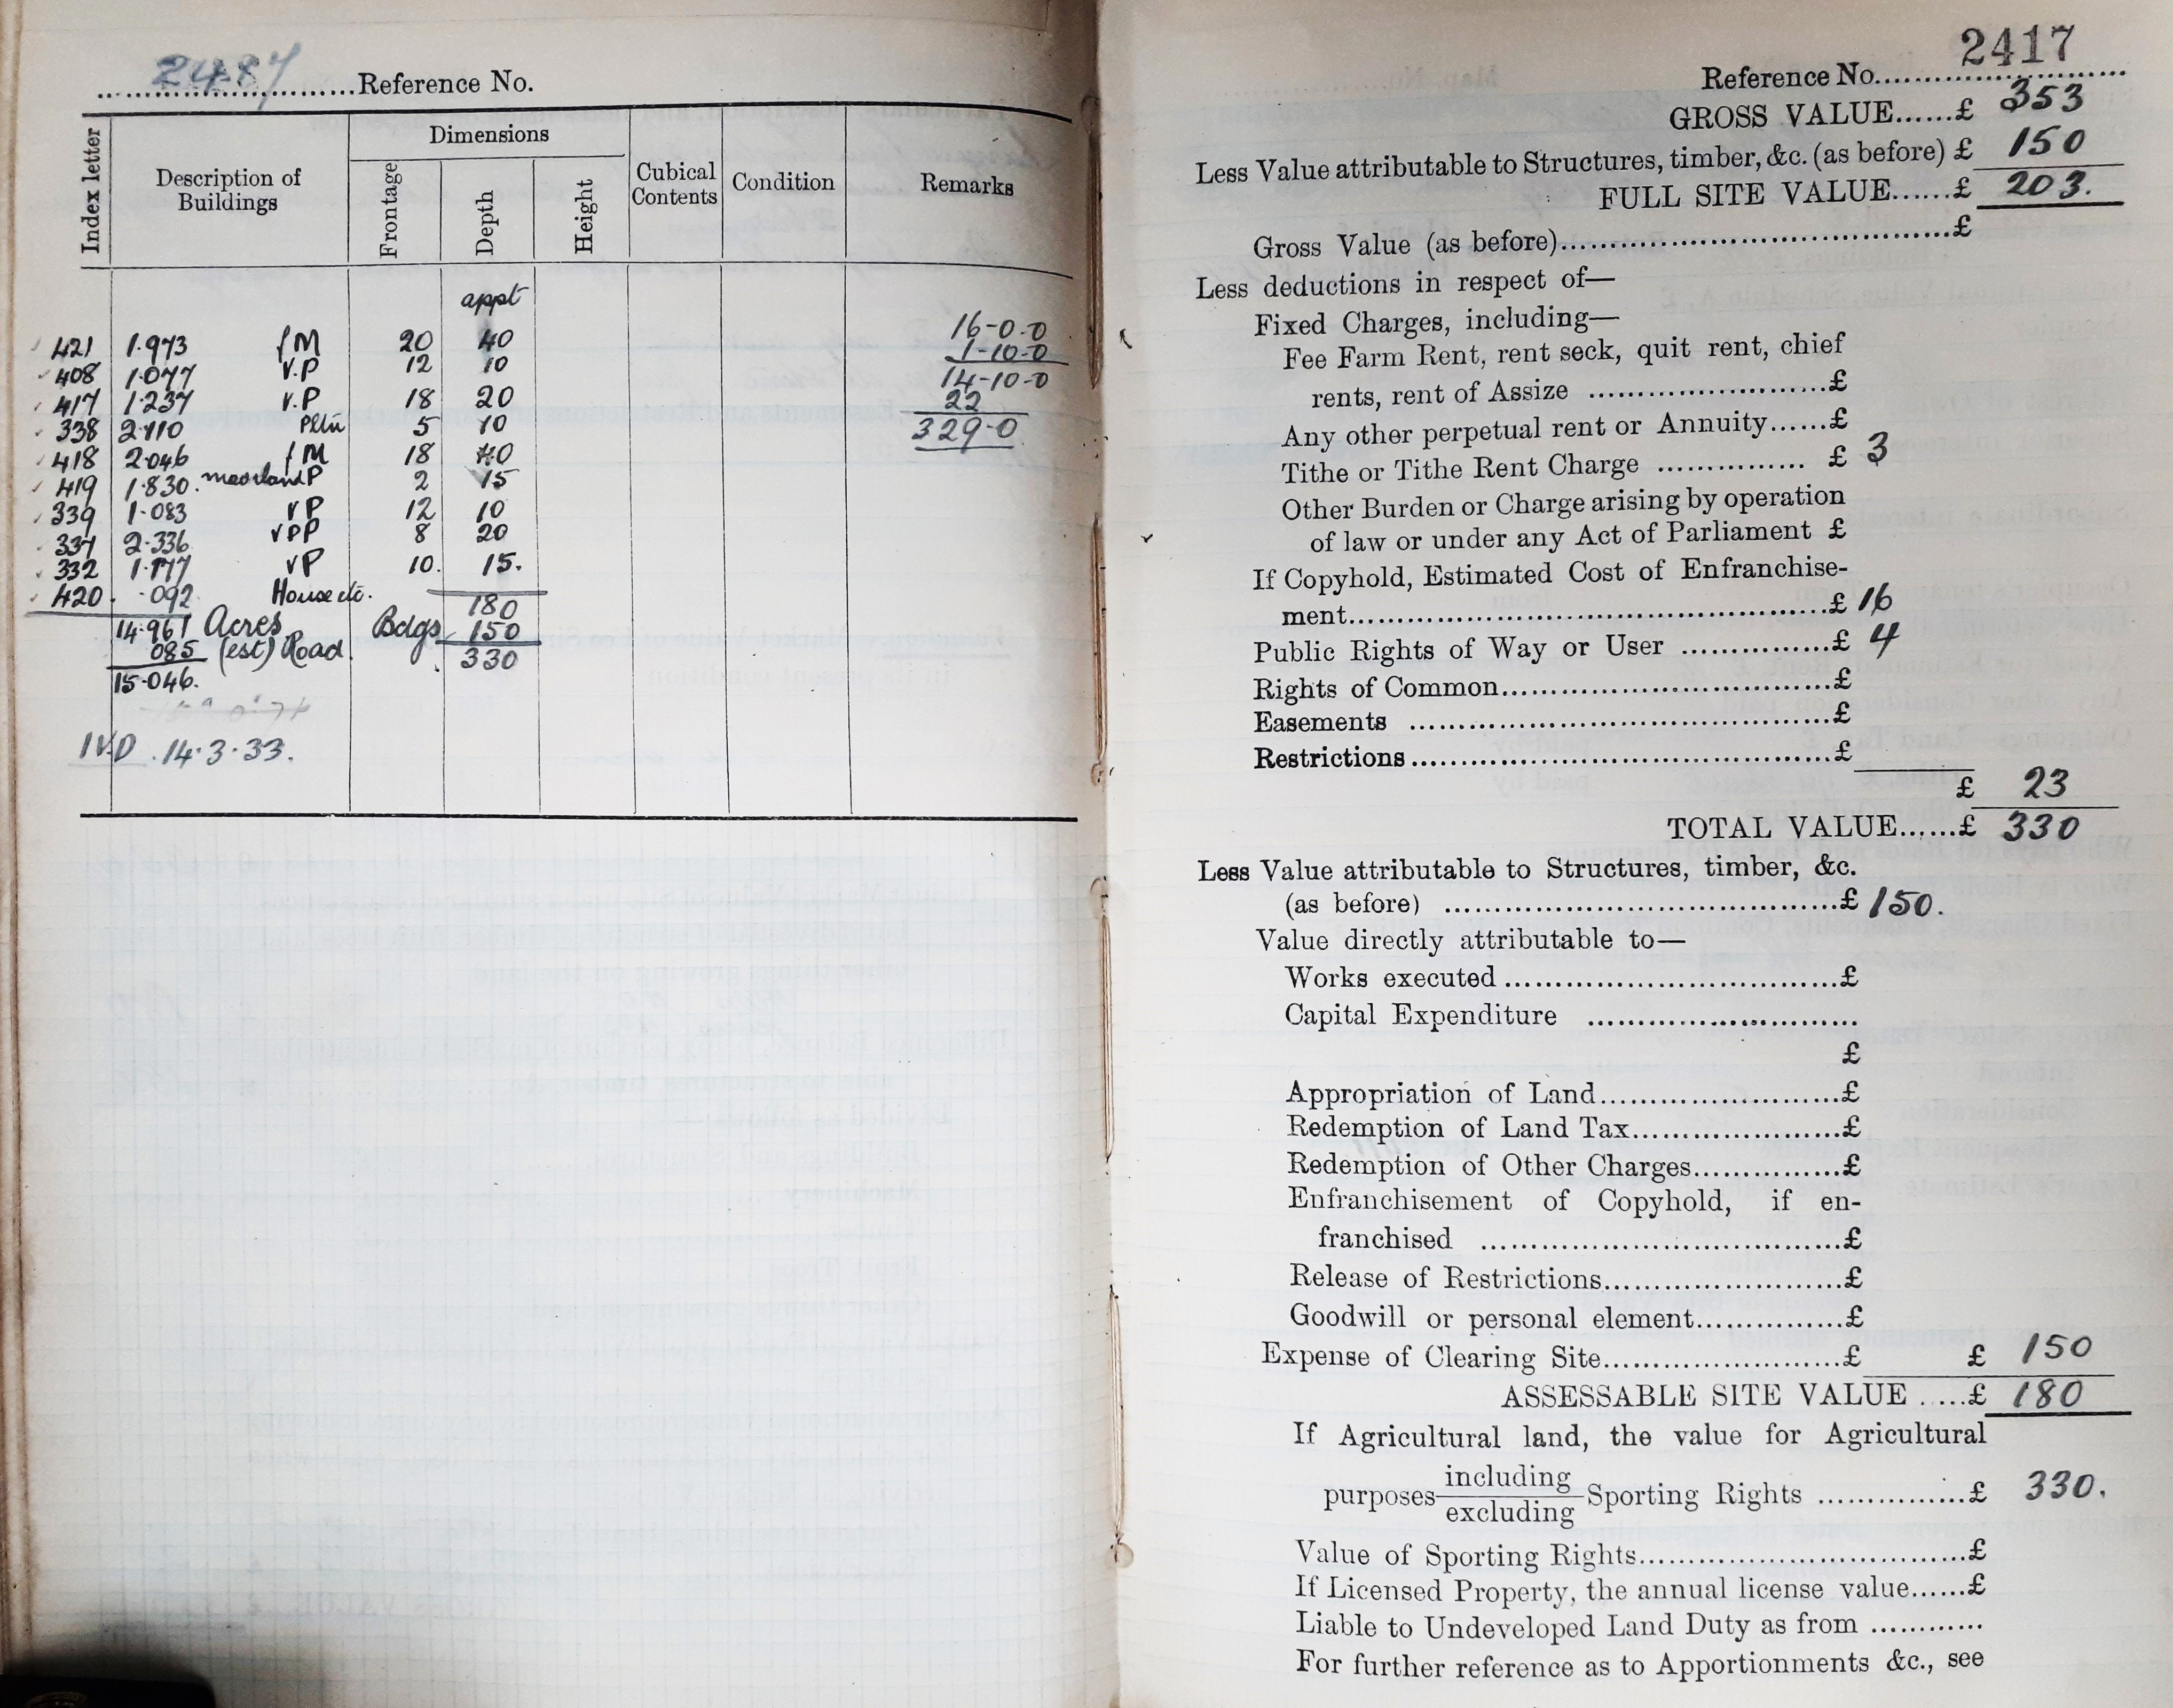 Reference No.
Index letter
Description of
Buildings
Dimensions
Frontage
Depth
Height
Cubical
Contents
Condition
Remarks
appt
421 1.973 fM 20 40 16-0-0
408 1.077 V.P 12 10 1-10-0
417 1.237 V.P 18 20 14-10-0
338 2.110 5 10 22
418 2.046 fM 18 40 329-0
419 1.830. moorland P 2 15
339 1.083 VP 12 10
337 2.336 VPP 8 20
332 1.177 VP 10. 15.
420. .092 House etc.
14.961 Acres 180
085 (est) Road. Bdgs 150
15.046. 330
IVD. 14.3.33.
2417
Reference No.
GROSS VALUE......£ 353
Less Value attributable to Structures, timber, &c. (as before) £ 150
FULL SITE VALUE......£ 203.
Gross Value (as before)..........£
Less deductions in respect of—
Fixed Charges, including—
Fee Farm Rent, rent seck, quit rent, chief
rents, rent of Assize ..........£
Any other perpetual rent or Annuity......£
Tithe or Tithe Rent Charge .......... £ 3
Other Burden or Charge arising by operation
of law or under any Act of Parliament £
If Copyhold, Estimated Cost of Enfranchise-
ment..........£ 16
Public Rights of Way or User ..........£ 4
Rights of Common..........£
Easements ..........£
Restrictions..........£
£ 23
TOTAL VALUE......£ 330
Less Value attributable to Structures, timber, &c.
(as before) ..........£ 150.
Value directly attributable to—
Works executed ..........£
Capital Expenditure ..........
£
Appropriation of Land..........£
Redemption of Land Tax..........£
Redemption of Other Charges..........£
Enfranchisement of Copyhold, if en-
franchised ..........£
Release of Restrictions..........£
Goodwill or personal element..........£
Expense of Clearing Site..........£ £ 150
ASSESSABLE SITE VALUE .....£ 180
If Agricultural land, the value for Agricultural
including
purposes Sporting Rights ..........£ 330.
excluding
Value of Sporting Rights..........£
If Licensed Property, the annual license value......£
Liable to Undeveloped Land Duty as from ............
For further reference as to Apportionments &c., see